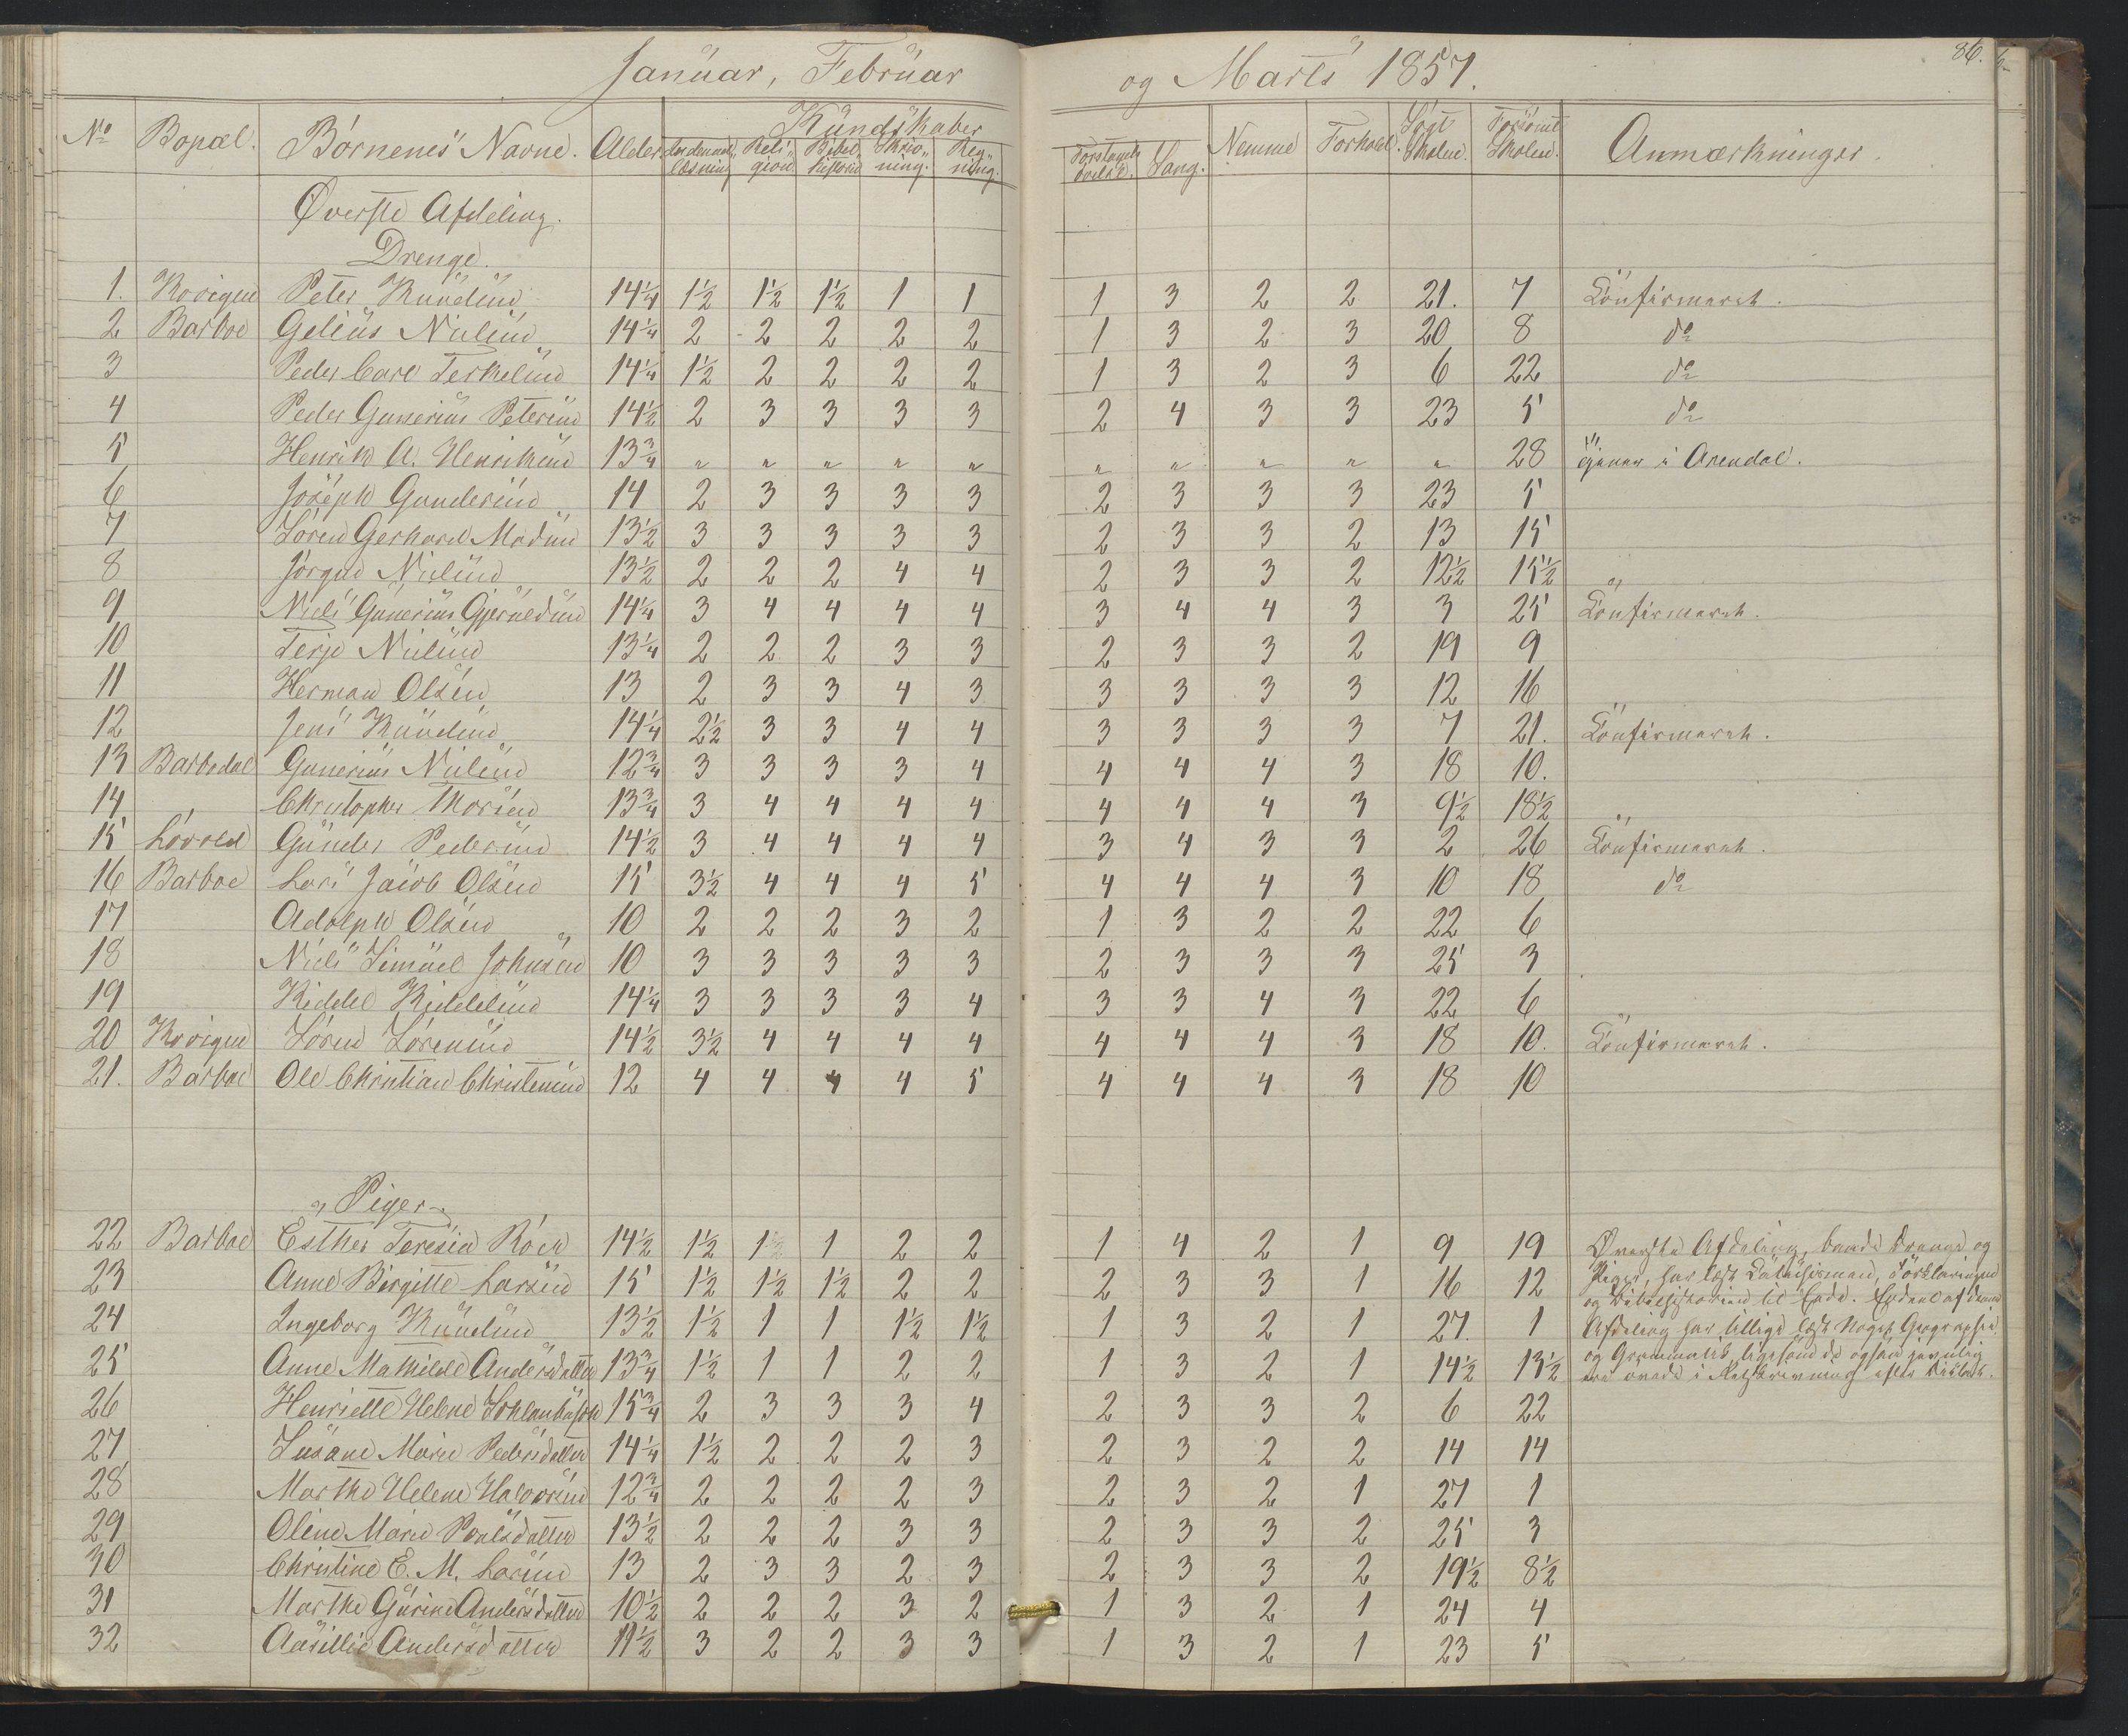 Januar, Februar og Marts 1857.
86.
No Bopæl. Børnenes Navne. Alder. Kundskaber Nemme Forhold. Søgt Skolen. Forsømt Skolen. Anmærkninger.
Indenad læsning Religion. Bibel historie Skrivning. Regning. Forstands øvelse. Sang.
Øverste Afdeling.
Drenge.
1. Peter Knudsen 14 1/4 1 1/2 1 1/2 1 1/2 1 1 1 3 2 2 21. 7 Confirmereh.
2 Barboe Gelius Nielsen 14 1/4 2 2 2 2 2 1 3 2 3 20 8 do
3 Peder Carl Terkelsen 14 1/4 1 1/2 2 2 2 2 1 3 2 3 6 22 do
4 Peder Gunerius Petersen 14 1/2 2 3 3 3 3 2 4 3 3 23 5 do
5 Henrik A. Henriksen 13 3/4 " " " " " " " " " " 28 tjener i Arendal.
6 Joseph Gundersen 14 2 3 3 3 3 2 3 3 3 23 5
7 Søren Gerhard Madsen 13 1/2 3 3 3 3 3 2 3 3 2 13 15
8 Jørgen Nielsen 13 1/2 2 2 2 4 4 2 3 3 2 12 1/2 15 1/2
9 Niels Gunerius Gjeruldsen 14 1/4 3 4 4 4 4 3 4 4 3 3 25 Confirmereh.
10 Terje Nielsen 13 1/4 2 2 2 3 3 2 3 3 2 19 9
11 Herman Olsen 13 2 3 3 4 3 3 3 3 3 12 16
12 Jens Knudsen 14 1/4 2 1/2 3 3 4 4 3 3 3 3 7 21. Confirmereh.
13 Barbodal Gunerius Nielsen 12 3/4 3 3 3 3 4 4 4 4 3 18 10.
14 Christopher Thorsen 13 3/4 3 4 4 4 4 4 4 4 3 9 1/2 18 1/2
15 Løvold Gunder Pedersen 14 1/2 3 4 4 4 4 3 4 3 3 2 26 Confirmereh.
16 Barboe Lars Jacob Olsen 15 3 1/2 4 4 4 5 4 4 4 3 10 18 do
17 Adolph Olsen 10 2 2 2 3 2 1 3 2 2 22 6
18 Niels Simuel Johnsen 10 3 3 3 3 3 2 3 3 3 25 3
19 Kiddel Kiddelsen 14 1/4 3 3 3 3 4 3 3 4 3 22 6
20 Søren Sørensen 14 1/2 3 1/2 4 4 4 4 4 4 4 3 18 10. Confirmereh.
21. Barboe Ole Christian Christensen 12 4 4 4 4 5 4 4 4 3 18 10
Piger
22 Barboe Esther Teresia Röck 14 1/2 1 1/2 1 1/2 1 2 2 1 4 2 1 9 19 Øverste Afdeling, baade Drenge og
23 Anne Birgitte Larsen 15 1 1/2 1 1/2 1 1/2 2 2 2 3 3 1 16 12 Piger, har læst Catechismen, Forklaringen
og Bibelhistorien til Ende. Endeel af denne
24 Ingeborg Knudsen 13 1/2 1 1/2 1 1 1 1/2 1 1/2 1 3 2 1 27. 1 Afdeling har tillige læst Noget Geographie
25 Anne Mathilde Andersdatter 13 3/4 1 1/2 1 1 2 2 1 3 2 1 14 1/2 13 1/2 og Grammatik, ligesom de ogsaa jævnlig
ere øvede i Retskrivning efter Dictat.
26 Henriette Helene 15 3/4 2 3 3 3 4 2 3 3 2 6 22
27 Susane Marie Pedersdatter 14 1/4 1 1/2 2 2 2 3 2 3 2 2 14 14
28 Marthe Helene Halvorsen 12 3/4 2 2 2 2 3 2 3 2 1 27 1
29 Oline Marie Poulsdatter 13 1/2 2 2 2 3 3 2 3 3 2 25 3
30 Christine E. M. Larsen 13 2 3 3 2 3 2 3 3 2 19 1/2 8 1/2
31 Marthe Gurine Andersdatter 10 1/2 2 2 2 3 2 1 3 2 1 24 4
32 Aasillie Andersdatter 11 1/2 3 2 2 3 3 1 3 2 1 23 5